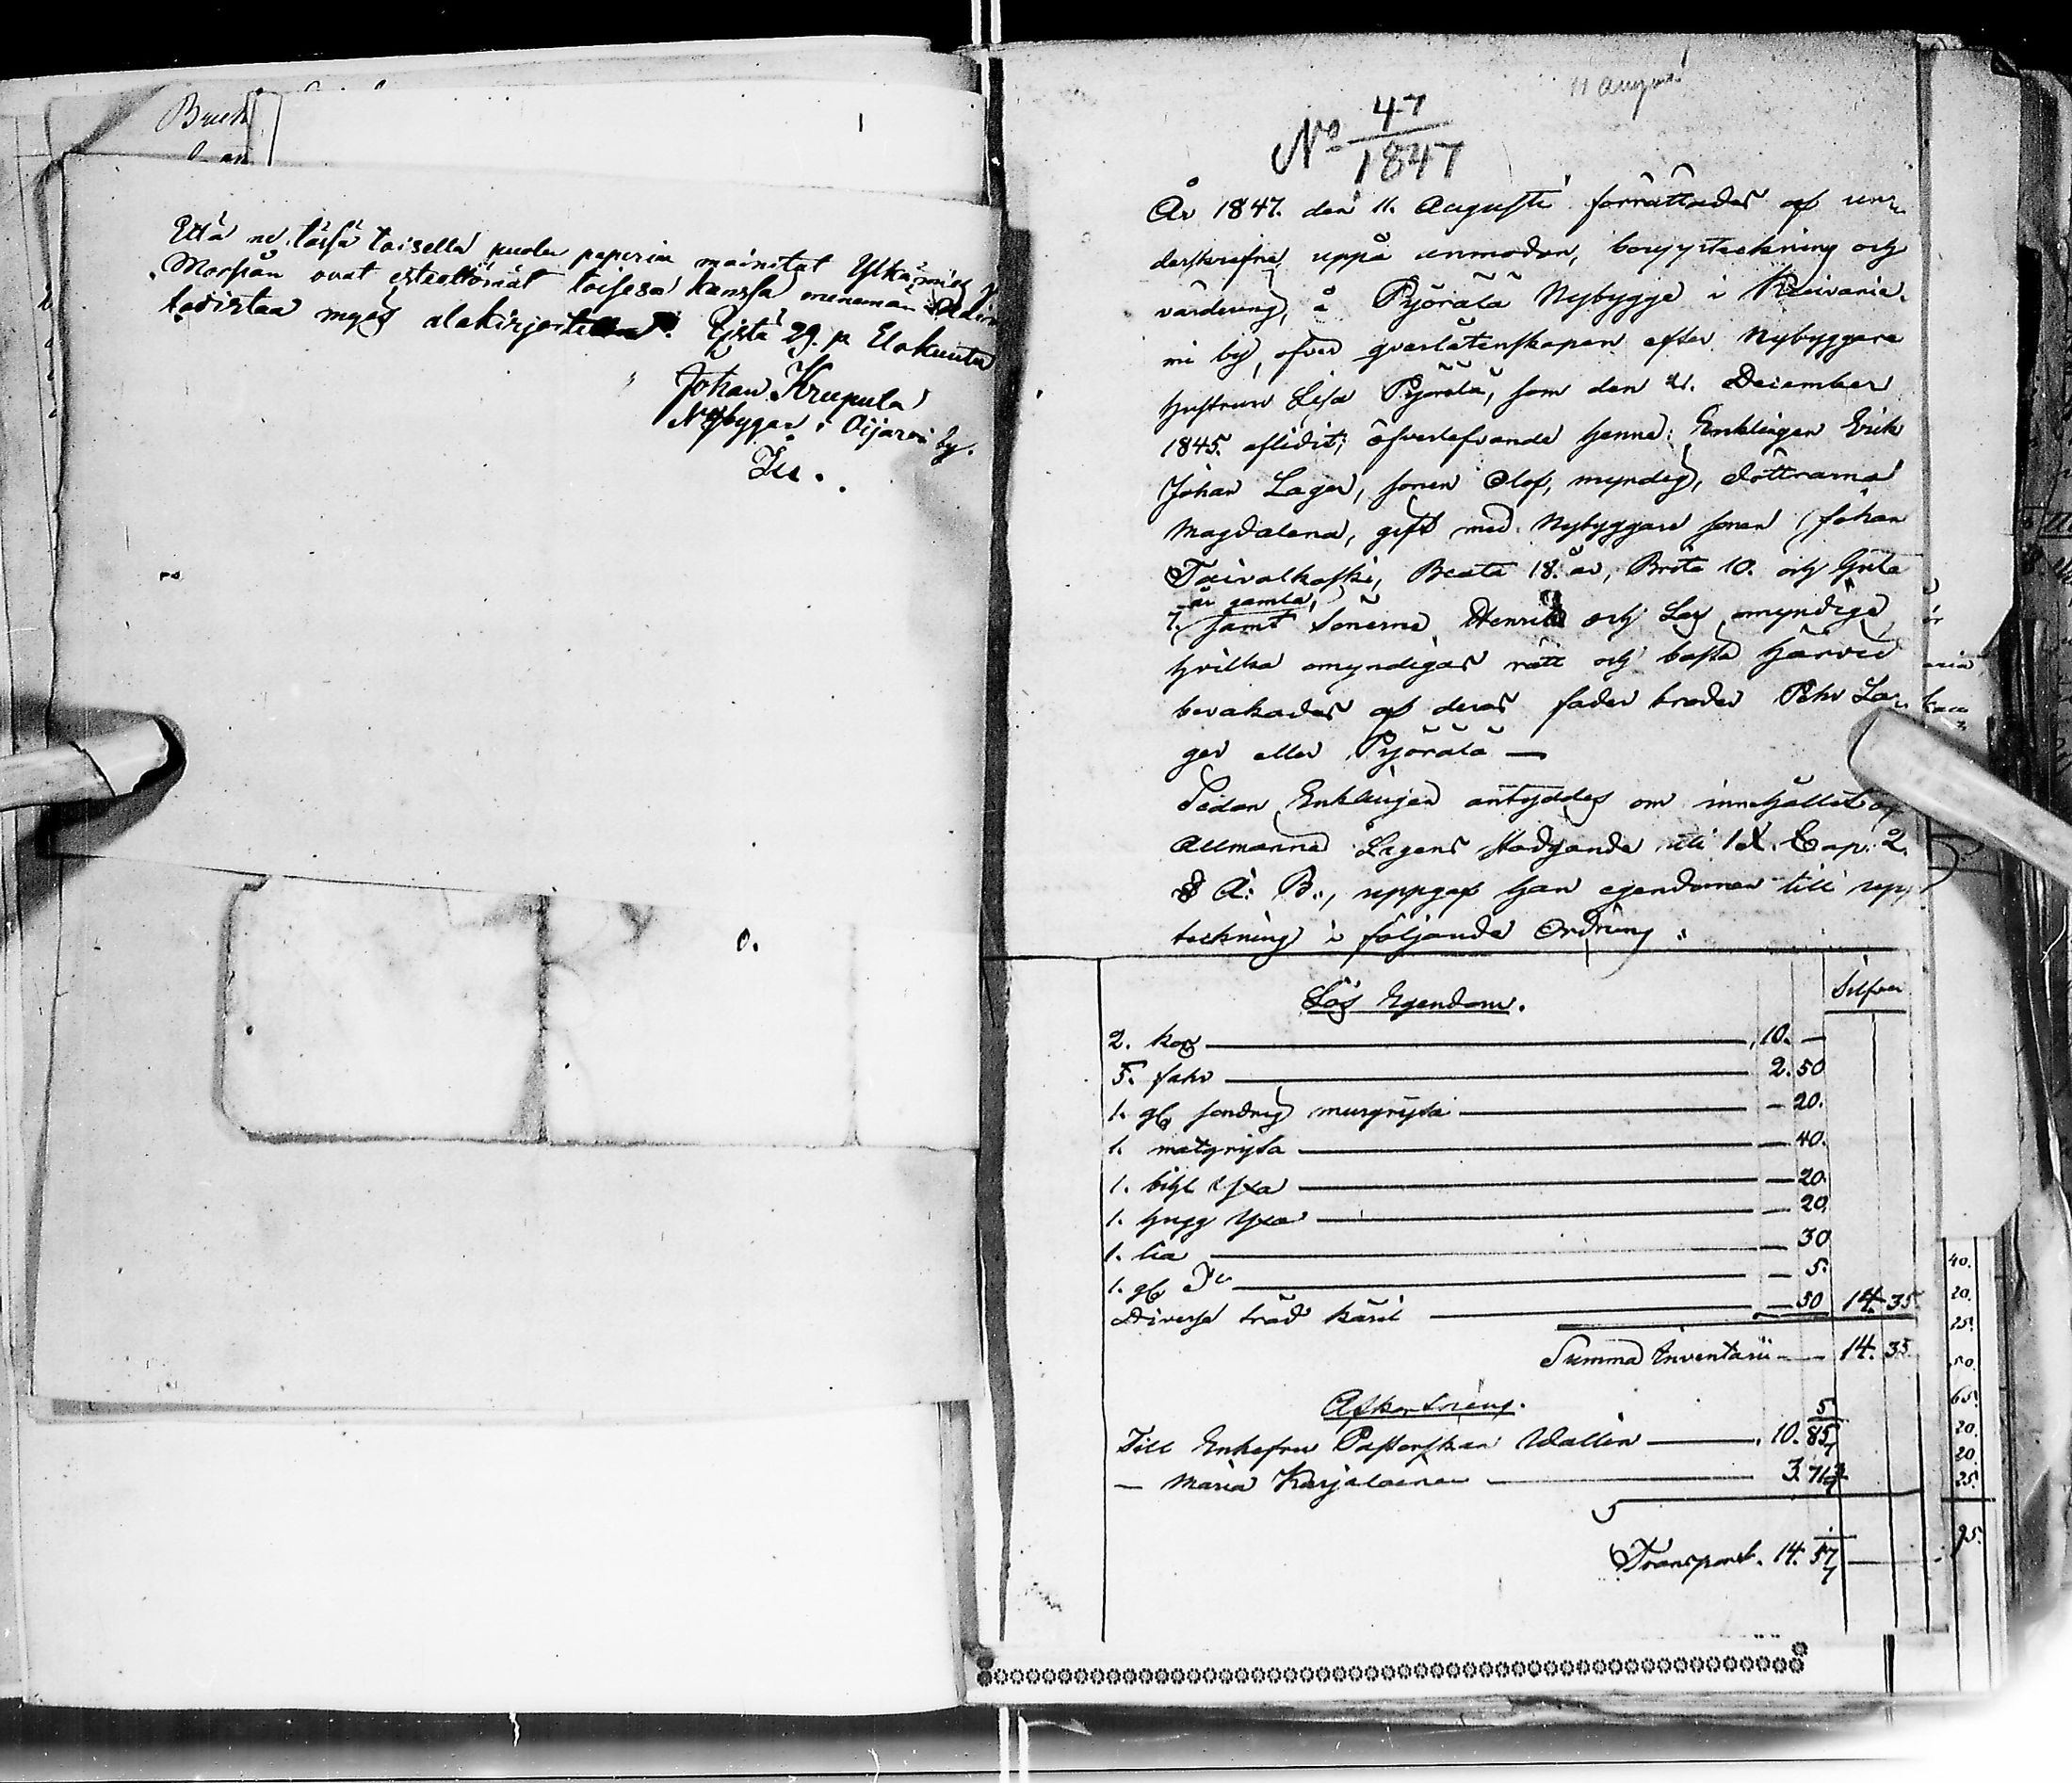 Että ne tässä toisella puolen paperia mainitut Ylkämies ja
Morsian ovat esteettömät toisesa kanssa menemän
todistaa myös alakirjoitettu. Iistä 29. p Elokuuta
Johan Krupula
Nybygar i Oijarvi by.
Iu.
0.
11 August
No 47/1847
År 1847. den 11. Augusti förrättades af un-
derskrefne uppå anmodan, bouppteckning och
värdering, å Pyörälä Nybygge i Kuivanie-
mi by, öfver qvarlåtenskapen efter Nybyggare
hustrun Lisa Pyörälä, som den 21. December
1845. aflidit; öfverlefvande henne: Enklingen Erik
Johan Lager, sonen Olof, myndig, döttrarna
Magdalena, gift med Nybyggare sonen Johan
Taivalkoski, Beata 18. år, Brita 10. och Greta
år gamla,
7. samt sönerna Henrik och Lars omyndige
hvilka omyndigas rätt och bästa härvid
bevakades af deras fader broder Pehr La-
ger eller Pyörälä —
Sedan Enklingen antyddes om innehållet af
Allmänna Lagens stadgande uti IX. Cap. 2.
§ Ä. B., uppgaf han egendomen till upp-
teckning i följande Ordning:
Silfver
Lös Egendom.
2. kor 10. —
5. fahr 2. 50
1. gl söndrig murgryta — 20.
1. matgryta — 40.
1. bihl Yxa — 20.
1. hugg Yxa — 20.
1. lia — 30
1. gl Do — 5.
Diverse träd käril — 50 14. 35.
Summa Inventarii — 14. 35.
Afkortning.
Till Enkefru Pastorskan Wallin 10. 85 5/7
— Maria Karjalainen 3. 71 3/7
Transport. 14. 57 1/7
40.
20.
25.
50.
65.
20.
20.
25.
95.